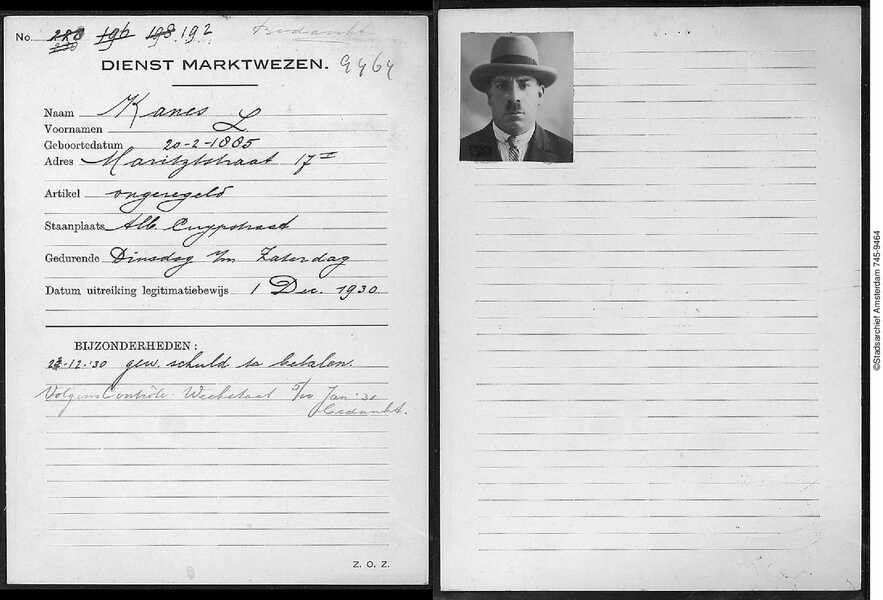 No. 228 196 198 192
230
Bedankt
9464
DIENST MARKTWEZEN.
Naam Kanes
Voornamen L
Geboortedatum 20-2-1885
Adres Maritzstraat 17 II
Artikel ongeregeld
Staanplaats Alb. Cuypstraat
Gedurende Dinsdag t/m Zaterdag
Datum uitreiking legitimatiebewijs 1 Dec. 1930
BIJZONDERHEDEN:
-12-'30 gew. schuld te betalen.
Volgens Contrôle Weekstaat 5/10 Jan '30
bedankt.
Z. O. Z.
©Stadsarchief Amsterdam 745-9464